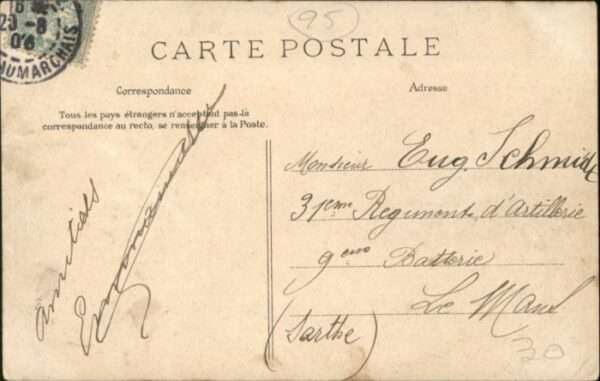 95
6
20-8
06
UMARCHAIS
CARTE POSTALE
Correspondance
Adresse
Tous les pays étrangers n'acceptant pas la
correspondance au recto, se renseigner à la Poste.
amitiés
Monsieur Eug. Schmidt
31eme Regiment d'Artillerie
9eme Batterie
Le Mans
(Sarthe)
30